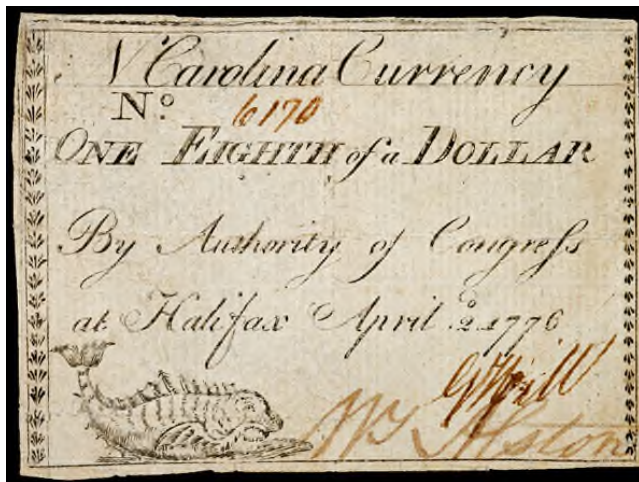 N Carolina Currency
No. 6170
ONE EIGHTH of a DOLLAR
By Authority of Congreſs
at Halifax April 2d 1776
Alston